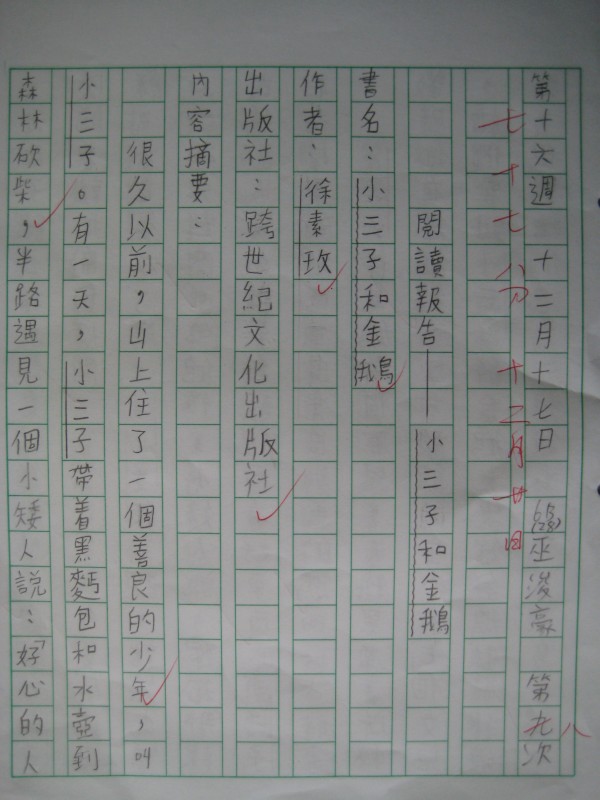 第十六週 十二月十七日 巫浚豪 第九次
八
七十七分 十二月廿四
閱讀報告——小三子和金鵝
書名：小三子和金鵝
作者：徐素玫
出版社：跨世紀文化出版社
內容摘要：
很久以前，山上住了一個善良的少年，叫
小三子。有一天，小三子帶着黑麵包和水壺到
森林砍柴，半路遇見一個小矮人說：「好心的人